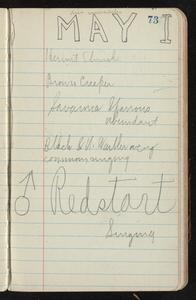 73
MAY 1
Hermit Thrush
Brown Creeper
Savanna Sparrow
abundant
Black & W. Warbler
common singing
♂ Redstart
Singing